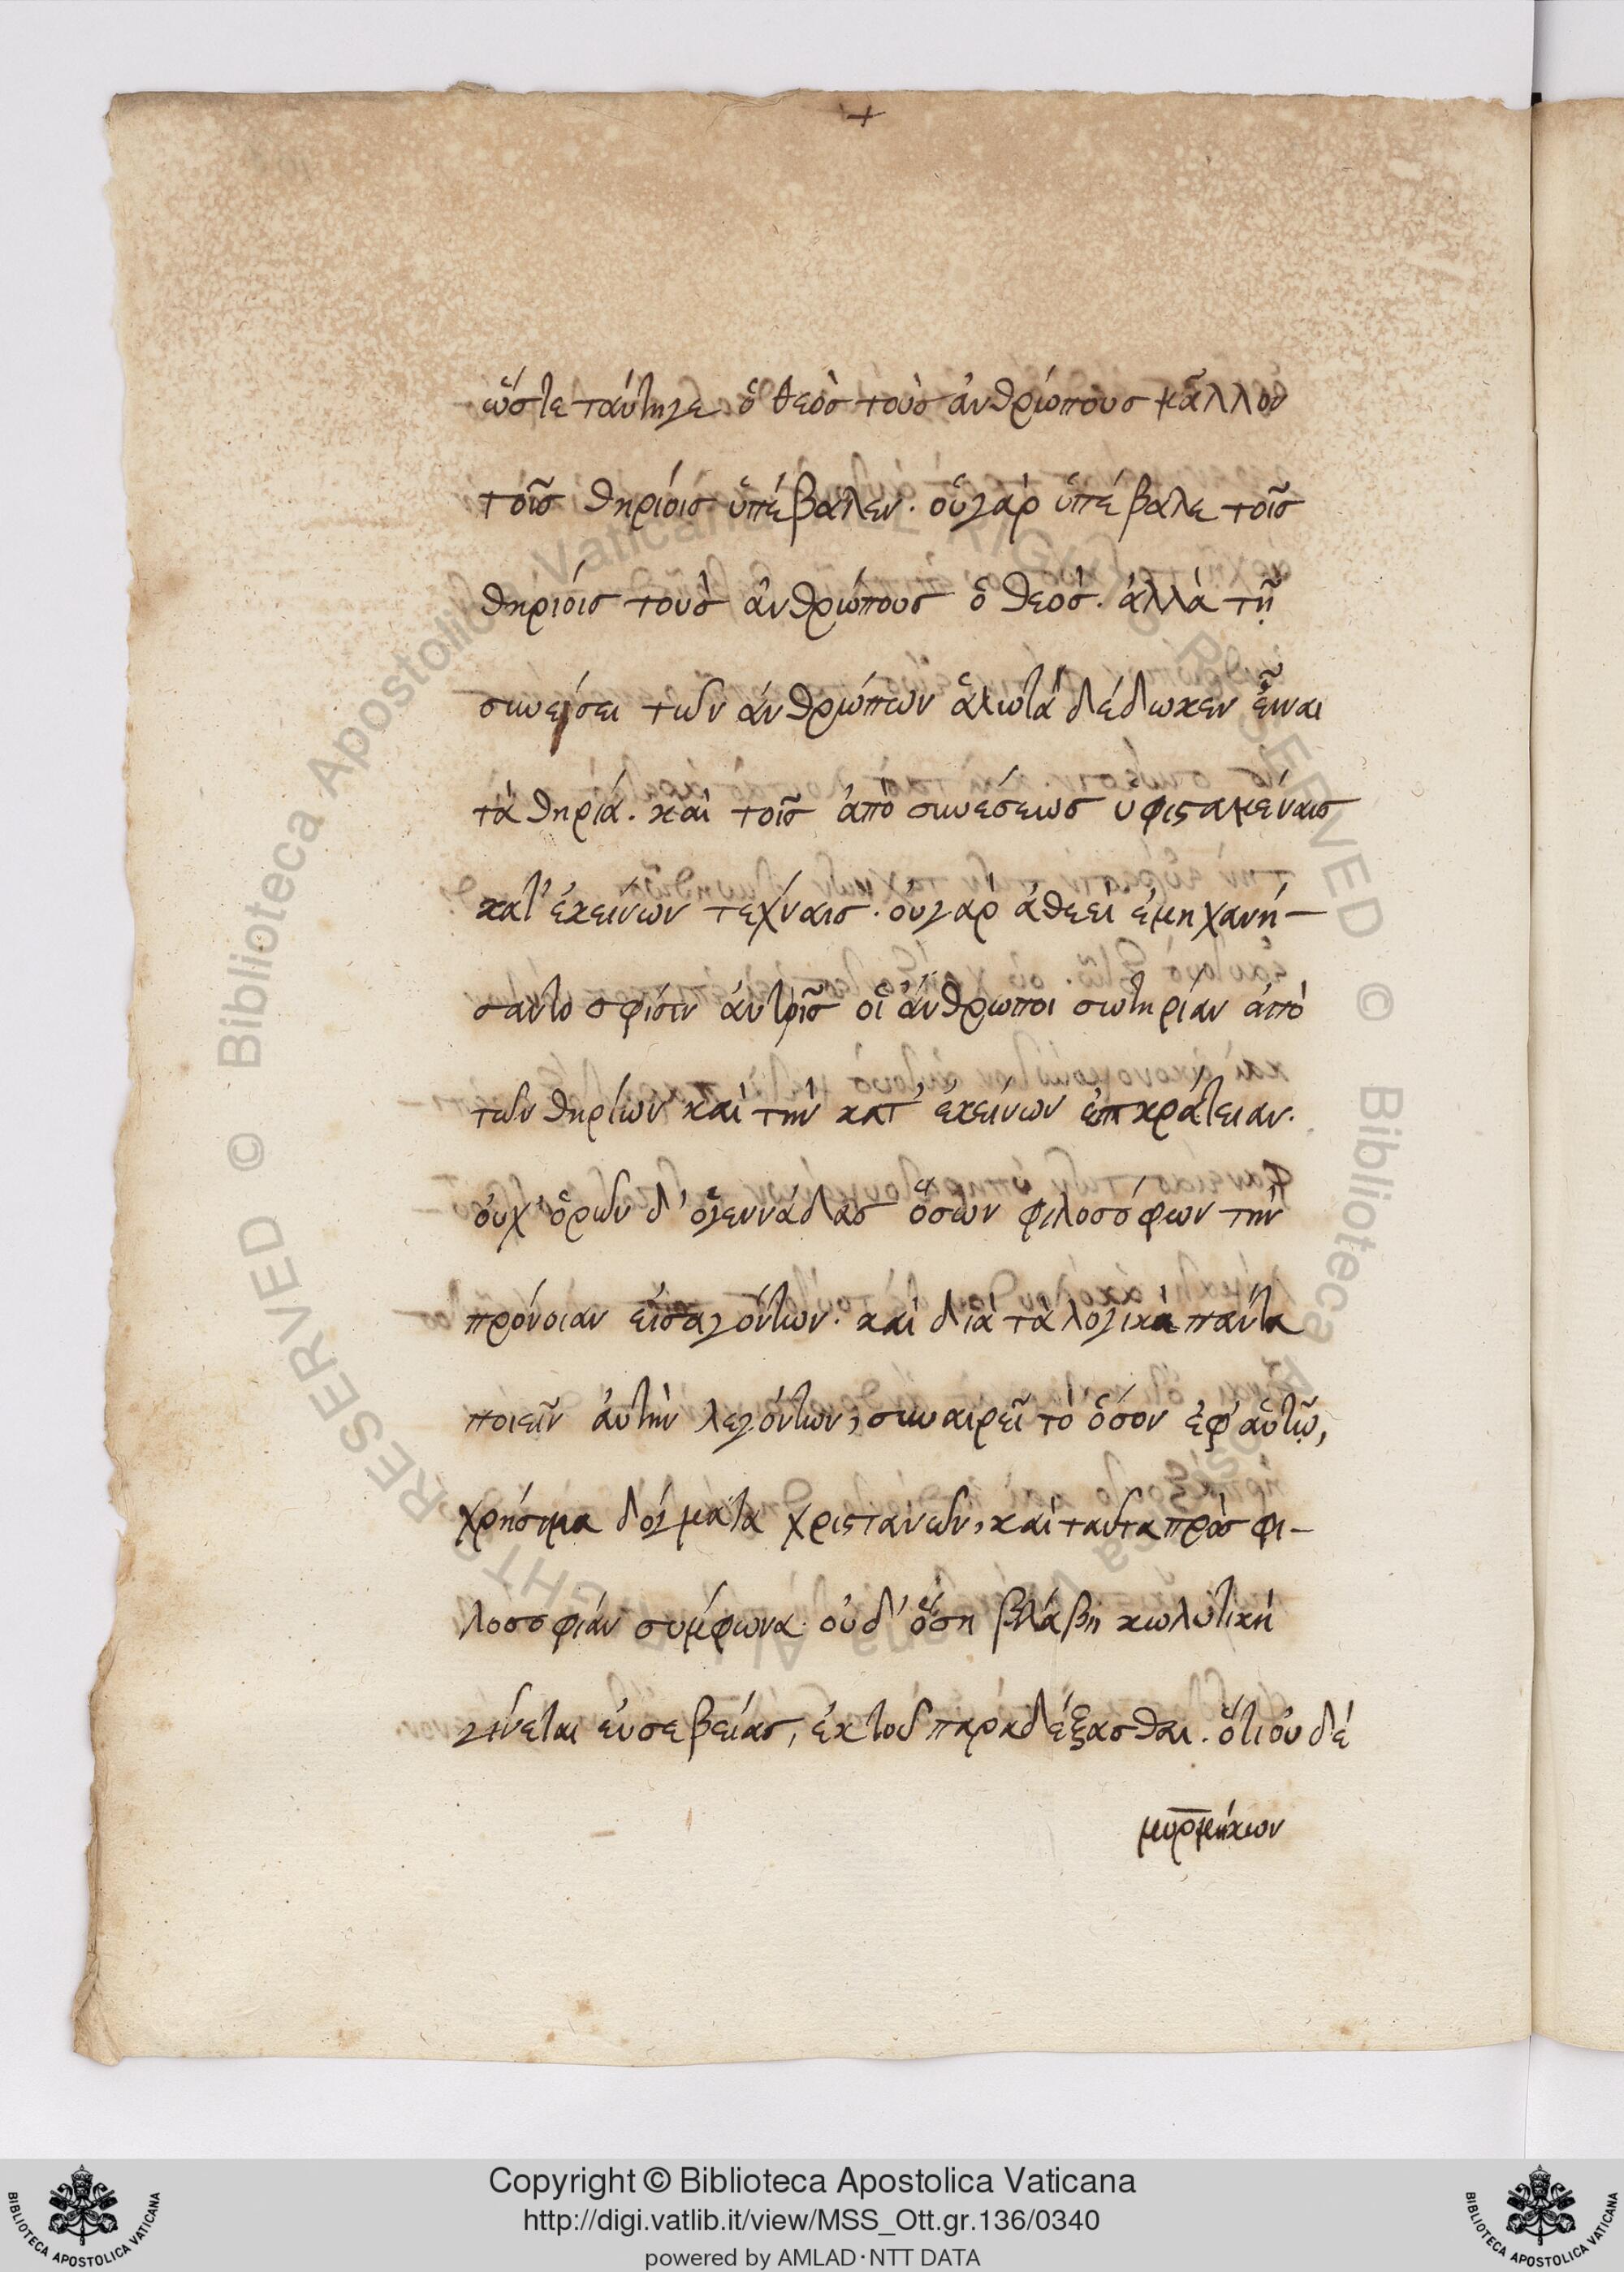 +
ὥστε ταύτηγε ὁ θεὸς τοὺς ἀνθρώπους μᾶλλον
τοῖς θηρίοις ὑπέβαλεν. οὐγὰρ ὑπέβαλε τοῖς
θηρίοις τοὺς ἀνθρώπους ὁ θεός. ἀλλὰ τῇ
συνέσει τῶν ἀνθρώπων ἁλωτὰ δέδωκεν εἶναι
τὰ θηρία. καὶ τοῖς ἀπὸ συνέσεως υφισαμέναις
κατ' ἐκείνων τεχναις. ουγὰρ ἀθεεὶ ἐμηχανή-
σαντο σφίσιν ἀυτοῖς οἱ ἄνθρωποι σωτηρίαν ἀπὸ
τῶν θηρίων καὶ τὴν κατ' ἐκείνων ἐπικράτειαν.
οὐχ' ὁρῶν δ' ὁγεννάδας ὅσων φιλοσόφων τὴν
πρόνοιαν εἰσαγόντων. καὶ διὰ τὰ λογικὰ πάντα
ποιεῖν ἀυτὴν λεγόντων, συναιρεῖ τὸ ὅσον ἐφ' αὑτῷ,
χρήσιμα δόγματα χριστανῶν, καὶ ταῦτα πρὸς φι-
λοσοφίαν σύμφωνα. οὐδ' ὅση βλάβη κωλυτικὴ
γίνεται ευσεβείας, ἐκ τοῦ παραδέξασθαι. ὅτι οὐδὲ
μυρμήκων
Copyright © Biblioteca Apostolica Vaticana
http://digi.vatlib.it/view/MSS_Ott.gr.136/0340
powered by AMLAD·NTT DATA
BIBLIOTECA APOSTOLICA VATICANA
BIBLIOTECA APOSTOLICA VATICANA